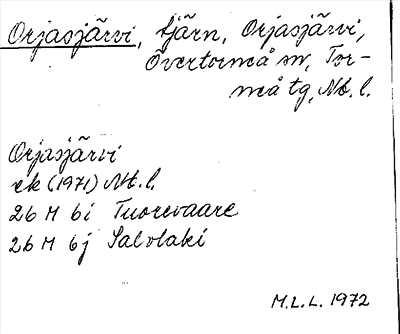 Orjasjärvi, tjärn, Orjasjärvi,
Övertorneå sn, Tor-
neå tg, Nb. l.
Orjasjärvi
ek (1971) Nb. l.
26 M 6i Tuorevaara
26 M 6j Salolaki
M.L.L. 1972